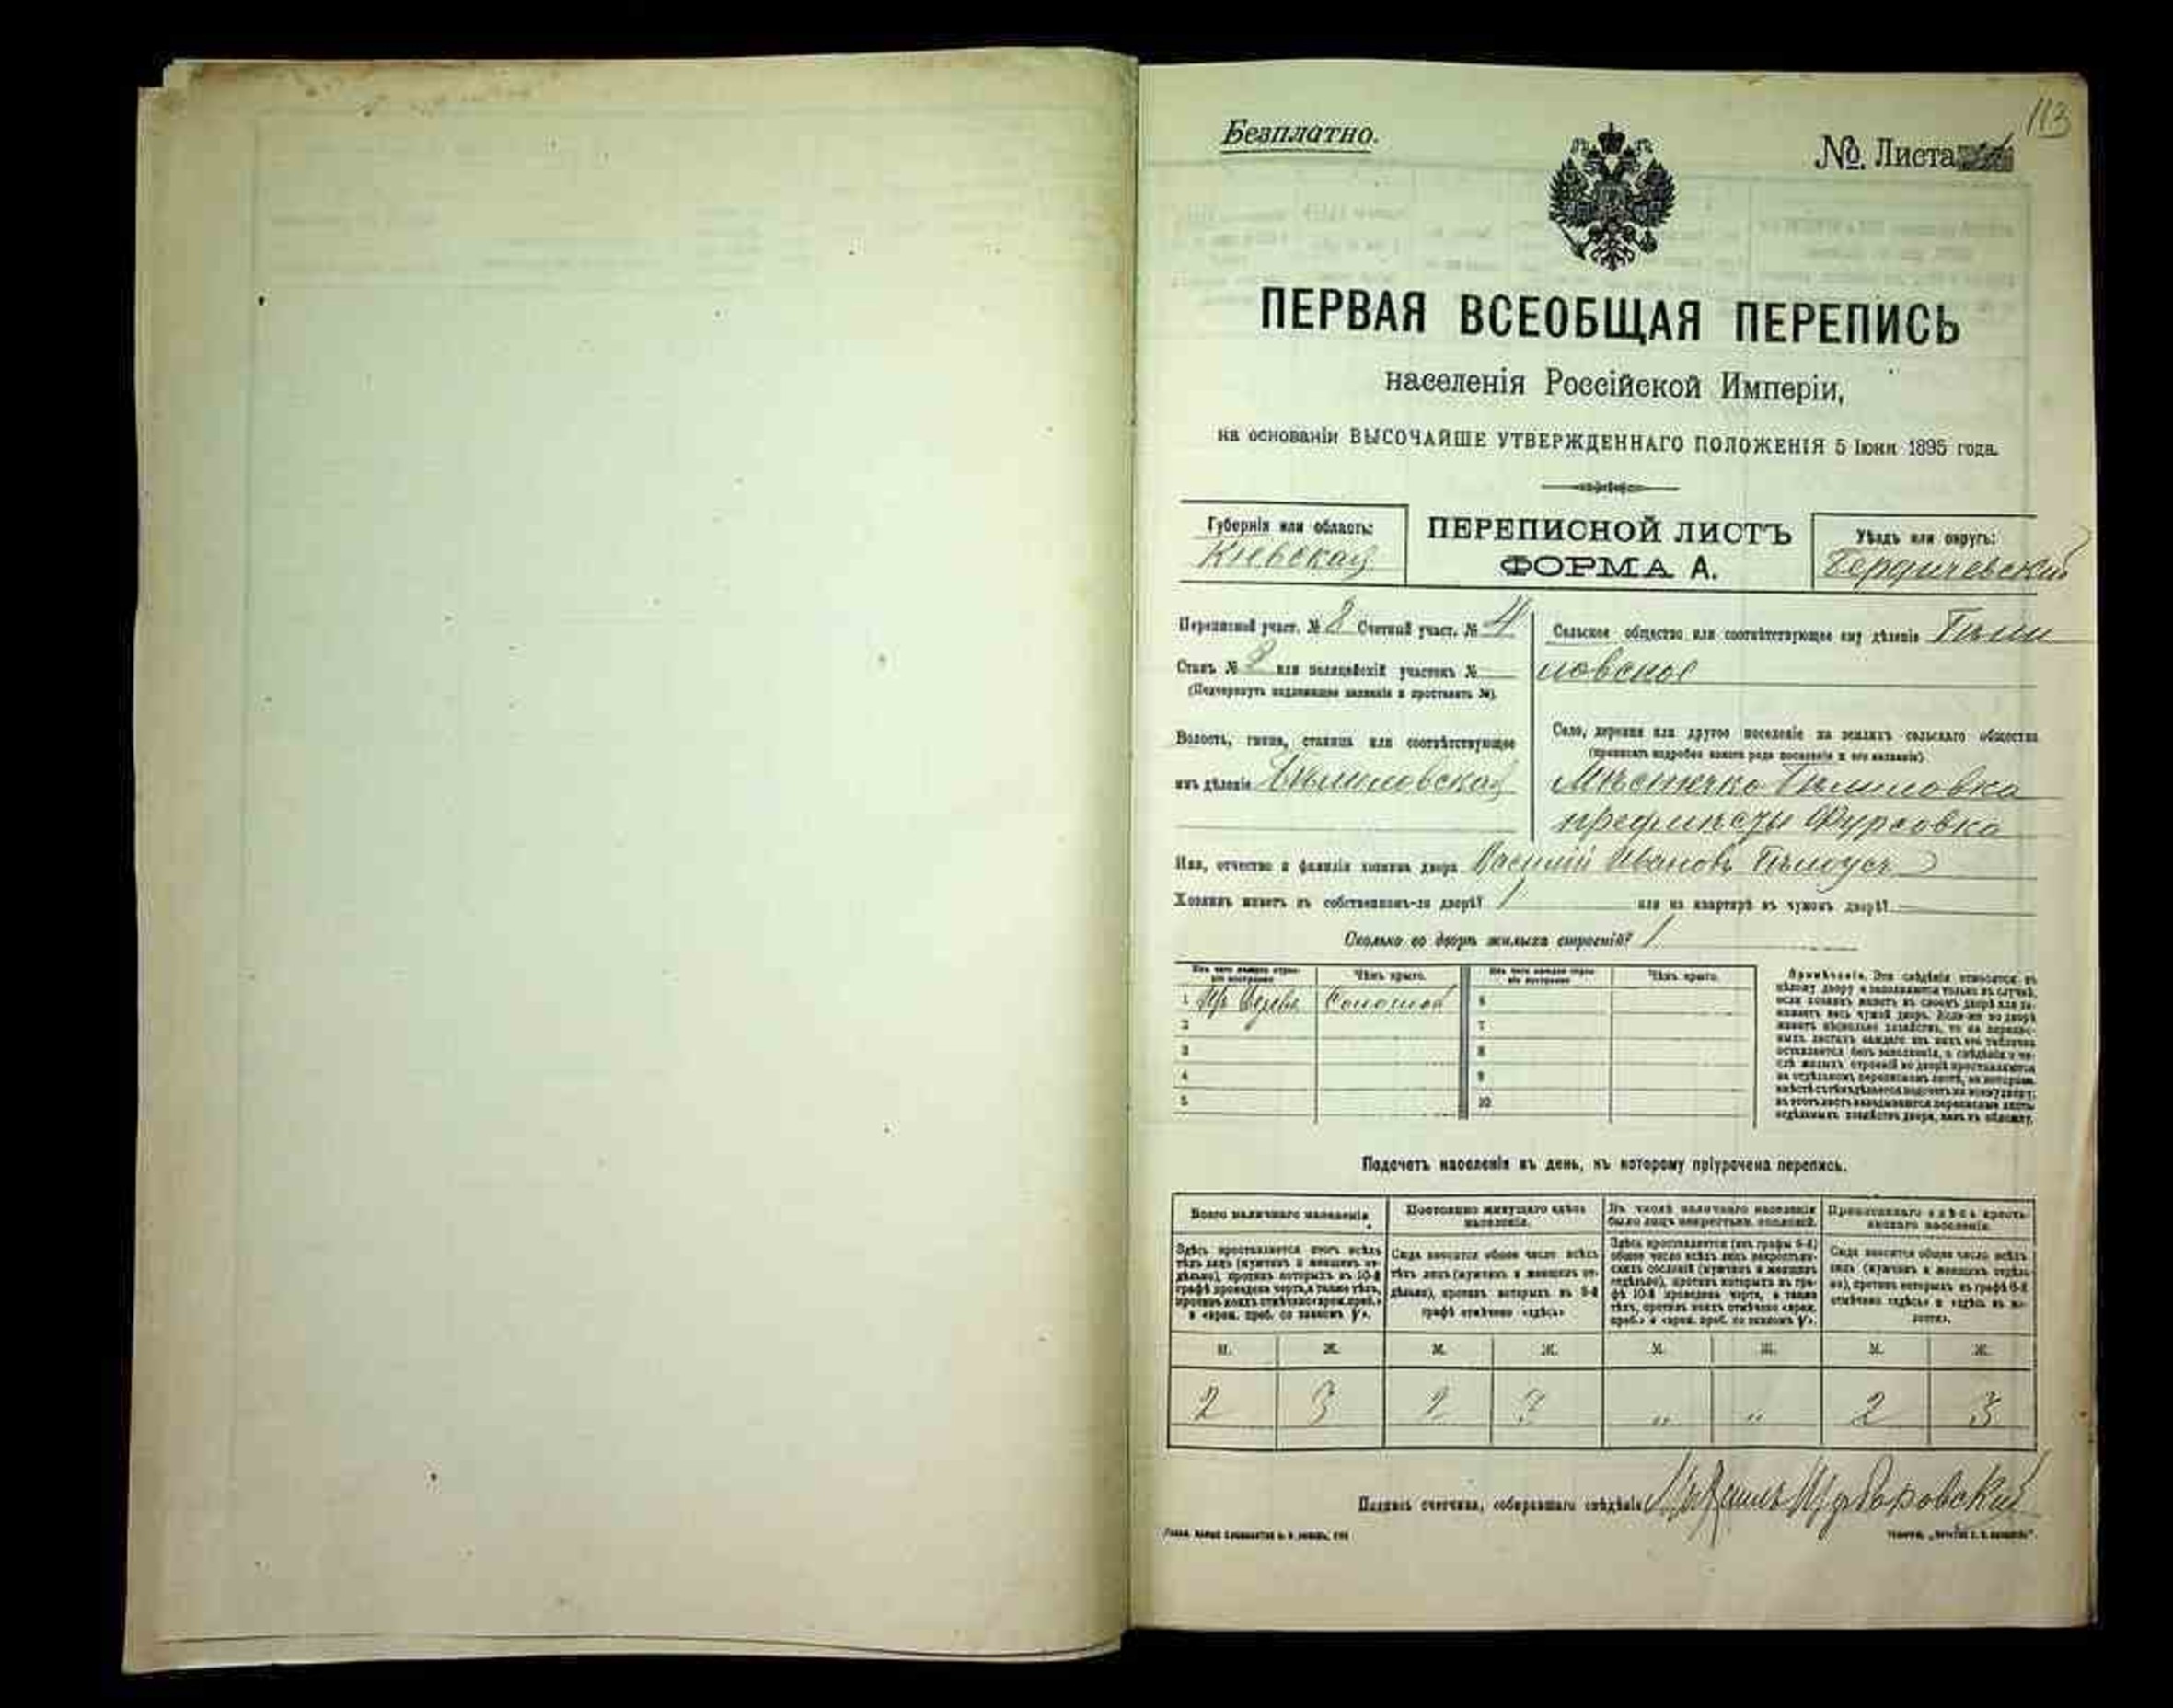 113
Безплатно.
№ Листа
ПЕРВАЯ ВСЕОБЩАЯ ПЕРЕПИСЬ
населенія Россійской Имперіи,
на основаніи ВЫСОЧАЙШЕ УТВЕРЖДЕННАГО ПОЛОЖЕНІЯ 5 Іюня 1895 года.
Губернія или область:
Кіевская
ПЕРЕПИСНОЙ ЛИСТЪ
ФОРМА А.
Уѣздъ или округъ:
Бердичевскій
Переписной участ. № 8 Счетный участ. № 4
Станъ № 2 или полицейскій участокъ №
(Подчеркнуть надлежащее названіе и проставить №).
Волость, гмина, станица или соотвѣтствующее
имъ дѣленіе Бѣлиловская
Сельское общество или соотвѣтствующее ему дѣленіе Бѣли
ловское
Село, деревня или другое поселеніе на земляхъ сельскаго общества
(прописать подробно какого рода поселеніе и его названіе).
Мѣстечко Бѣлиловка
Имя, отчество и фамилія хозяина двора Василій Ивановъ Бѣлоусъ
Хозяинъ живетъ въ собственномъ-ли дворѣ? 1 или на квартирѣ въ чужомъ дворѣ?
Сколько во дворѣ жилыхъ строеній? 1
Изъ чего каждое строеніе построено
Чѣмъ крыто.
Изъ чего каждое строеніе построено
Чѣмъ крыто.
1 Соломой 6
2 7
3 8
4 9
5 10
Примѣчаніе. Эти свѣдѣнія относятся къ
цѣлому двору и заполняются только въ случаѣ,
если хозяинъ живетъ въ своемъ дворѣ или за-
нимаетъ весь чужой дворъ. Если-же во дворѣ
живетъ нѣсколько хозяйствъ, то на перепис-
ныхъ листахъ каждаго изъ нихъ эта табличка
оставляется безъ заполненія, а свѣдѣнія о чи-
слѣ жилыхъ строеній во дворѣ проставляются
на отдѣльномъ переписномъ листѣ, на которомъ
вмѣстѣ съ тѣмъ дѣлается подсчетъ по всему двору;
въ этотъ листъ вкладываются переписные листы
отдѣльныхъ хозяйствъ двора, какъ въ обложку.
Подсчетъ населенія въ день, къ которому пріурочена перепись.
Всего наличнаго населенія
Здѣсь проставляется итогъ всѣхъ
тѣхъ лицъ (мужчинъ и женщинъ от-
дѣльно), противъ которыхъ въ 10-й
графѣ проведена черта, а также тѣхъ,
противъ коихъ отмѣчено «врем. преб.»
и «врем. преб. со знакомъ V».
Постоянно живущаго здѣсь
населенія.
Сюда вносится общее число всѣхъ
тѣхъ лицъ (мужчинъ и женщинъ от-
дѣльно), противъ которыхъ въ 9-й
графѣ отмѣчено «здѣсь»
Въ числѣ наличнаго населенія
было лицъ некрестьян. сословій.
Здѣсь проставляется (изъ графы 6-й)
общее число всѣхъ лицъ некрестьян-
скихъ сословій (мужчинъ и женщинъ
отдѣльно), противъ которыхъ въ гра-
фѣ 10-й проведена черта, а также
тѣхъ, противъ коихъ отмѣчено «врем.
преб.» и «врем. преб. со знакомъ V».
Приписаннаго здѣсь кресть-
янскаго населенія.
Сюда вносится общее число всѣхъ
лицъ (мужчинъ и женщинъ отдѣль-
но), противъ которыхъ въ графѣ 8-й
отмѣчено «здѣсь» и «здѣсь въ во-
лости».
М. Ж. М. Ж. М. Ж. М. Ж.
2 3 2 3 " " 2 3
Подпись счетчика, собиравшаго свѣдѣнія